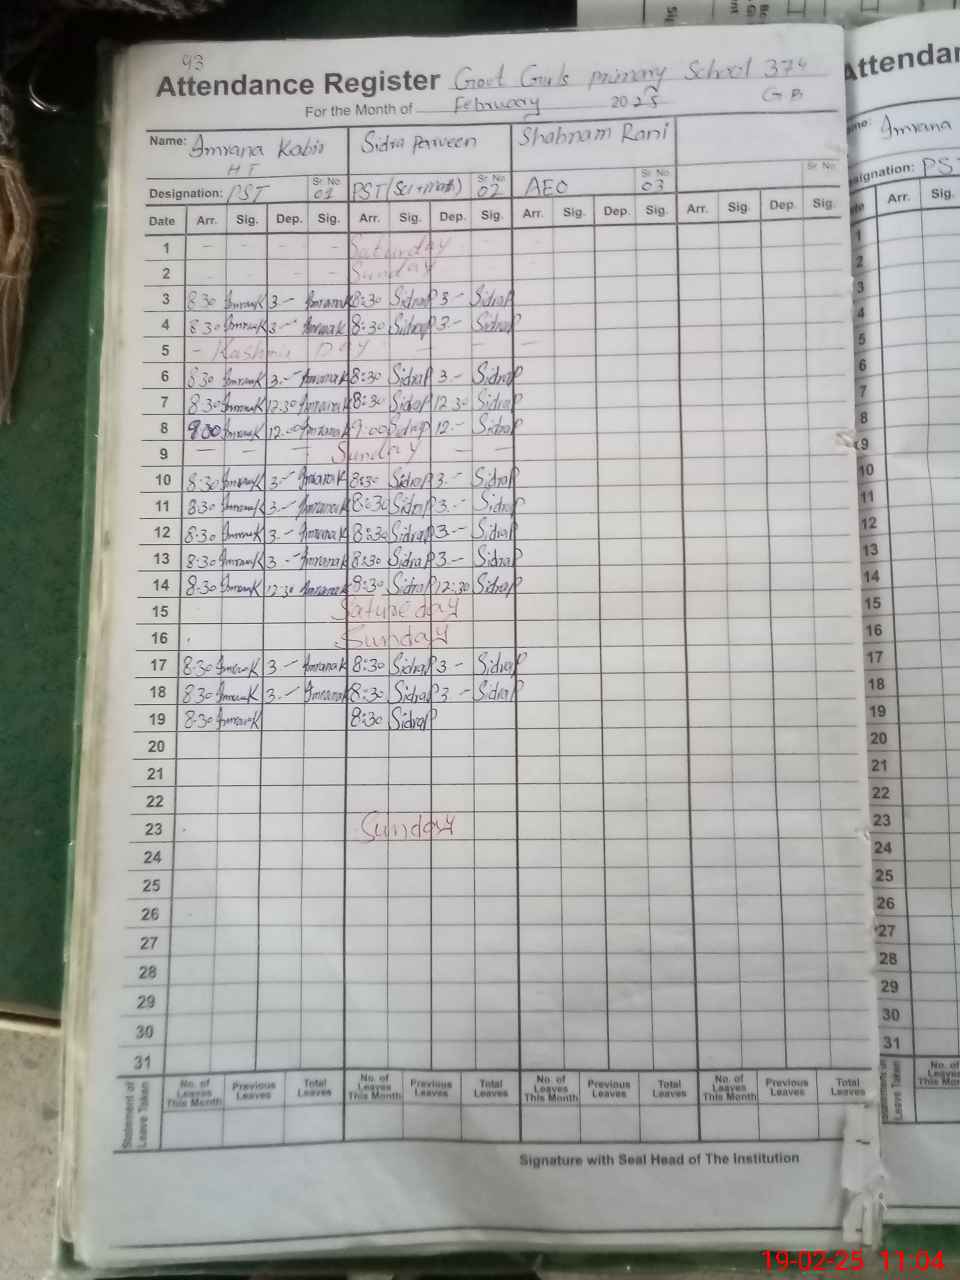 93
Attendance Register Govt Girls primary School 374
For the Month of February 2025 GB
Name: Imrana Kabir Sidra Parveen Shabnam Rani
HT
Designation: PST Sr. No 01 PST (Sci+math) Sr. No 02 AEO Sr. No 03 Sr. No
Date Arr. Sig. Dep. Sig. Arr. Sig. Dep. Sig. Arr. Sig. Dep. Sig. Arr. Sig. Dep. Sig.
1 - - - - Saturday - - -
2 - - - - Sunday
3 8:30 ImranaK 3.- ImranaK 8:30 SidraP 3- SidraP
4 8:30 ImranaK 3.- ImranaK 8:30 SidraP 3.- SidraP
5 - Kashmir Day - - -
6 8:30 ImranaK 3.- ImranaK 8:30 SidraP 3.- SidraP
7 8:30 ImranaK 12:30 ImranaK 8:30 SidraP 12:30 SidraP
8 9:00 ImranaK 12:00 ImranaK 9:00 SidraP 12.- SidraP
9 - - - Sunday - -
10 8:30 ImranaK 3.- ImranaK 8:30 SidraP 3.- SidraP
11 8:30 ImranaK 3.- ImranaK 8:30 SidraP 3.- SidraP
12 8:30 ImranaK 3.- ImranaK 8:30 SidraP 3.- SidraP
13 8:30 ImranaK 3.- ImranaK 8:30 SidraP 3.- SidraP
14 8:30 ImranaK 12:30 ImranaK 8:30 SidraP 12:30 SidraP
15 Satureday
16 Sunday
17 8:30 ImranaK 3- ImranaK 8:30 SidraP 3- SidraP
18 8:30 ImranaK 3.- ImranaK 8:30 SidraP 3.- SidraP
19 8:30 ImranaK 8:30 SidraP
20
21
22
23 Sunday
24
25
26
27
28
29
30
31
Statement of Leave Taken No. of Leaves This Month Previous Leaves Total Leaves No. of Leaves This Month Previous Leaves Total Leaves No. of Leaves This Month Previous Leaves Total Leaves No. of Leaves This Month Previous Leaves Total Leaves
Signature with Seal Head of The Institution
Attendar
Imrana
PST
Arr. Sig.
1
2
3
4
5
6
7
8
9
10
11
12
13
14
15
16
17
18
19
20
21
22
23
24
25
26
27
28
29
30
31
No. of
19-02-25 11:04